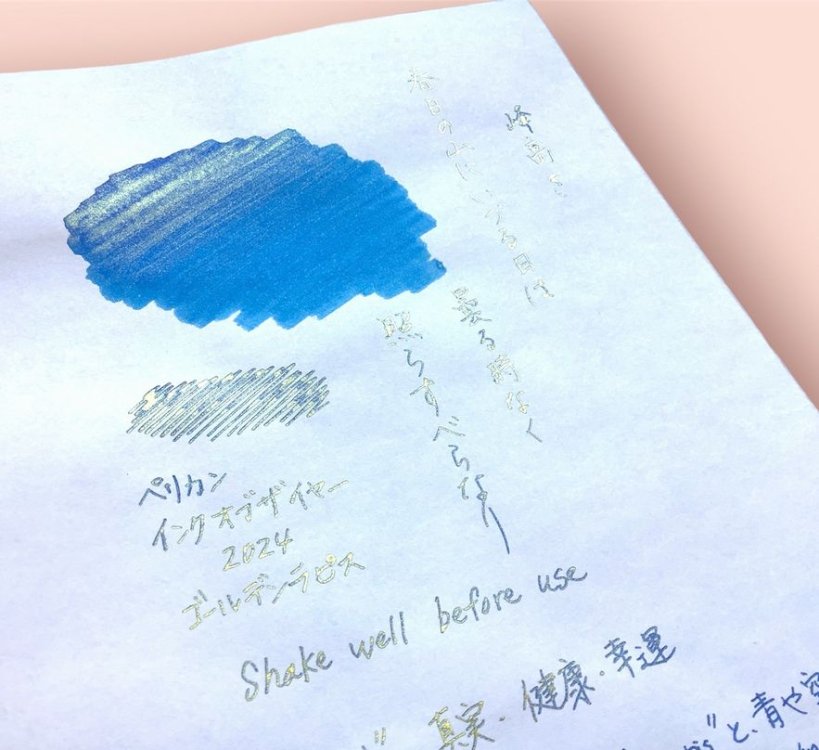 峰高き
春日の山にいづる日は
曇る時なく
照らすべらなり
ペリカン
インクオブザイヤー
2024
ゴールデンラピス
Shake well before use
真実・健康・幸運
”と、青や